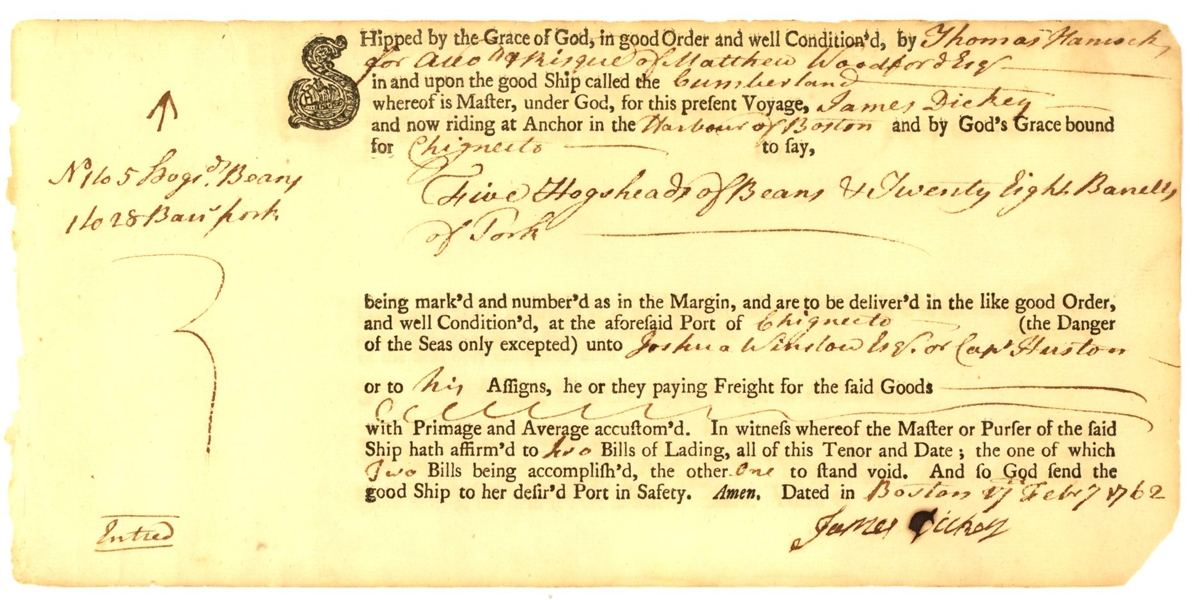 SHipped by the Grace of God, in good Order and well Condition'd, by Thomas Hancock,
for Acco & Risque of Matthew Woodford Esqr
in and upon the good Ship called the Cumberland
whereof is Master, under God, for this present Voyage, James Dickey
and now riding at Anchor in the Harbour of Boston and by God's Grace bound
for Chignecto to say,
No 1 to 5 Hogsds. Beans
1 to 28 Barrs pork
Five Hogsheads of Beans & Twenty Eight Barrells
of Pork
being mark'd and number'd as in the Margin, and are to be deliver'd in the like good Order,
and well Condition'd, at the aforesaid Port of Chignecto (the Danger
of the Seas only excepted) unto Joshua Winslow Esqr. or Capt Huston
or to his Assigns, he or they paying Freight for the said Goods
with Primage and Average accustom'd. In witness whereof the Master or Purser of the said
Ship hath affirm'd to two Bills of Lading, all of this Tenor and Date; the one of which
Two Bills being accomplish'd, the other One to stand void. And so God send the
good Ship to her desir'd Port in Safety. Amen. Dated in Boston 17 Febry 1762
James Dickey
Entred